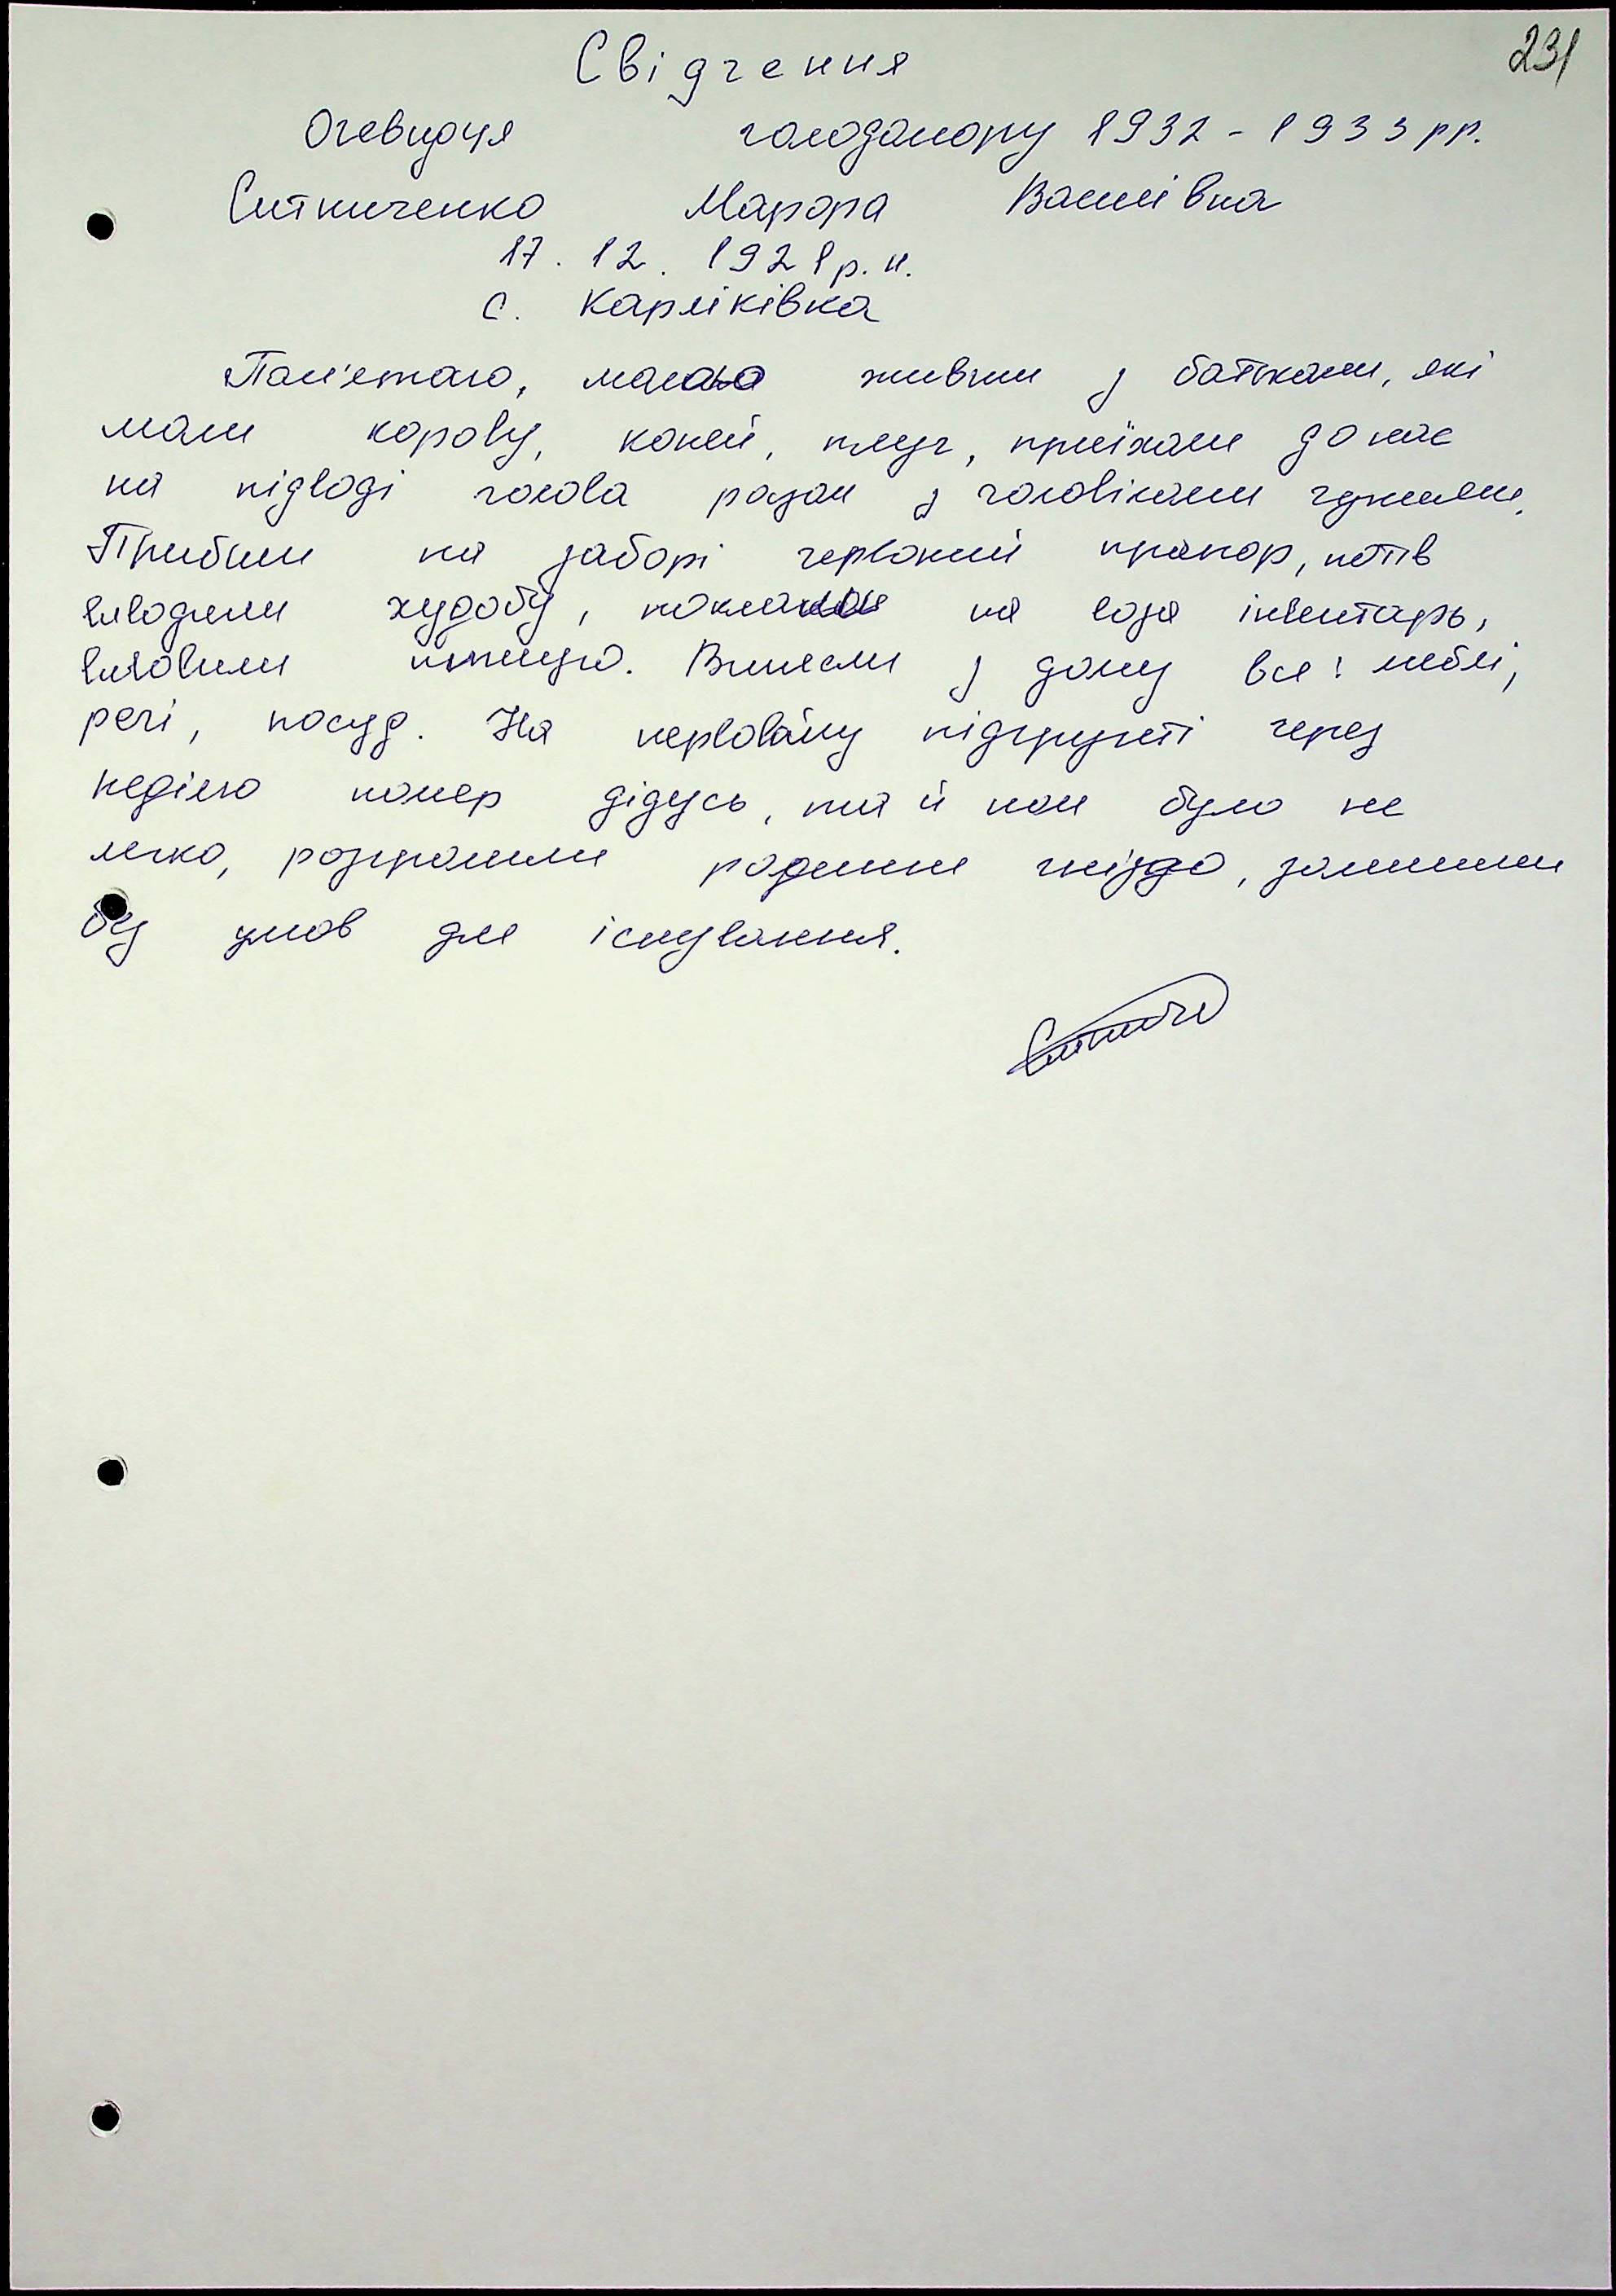 231
Свідчення
Очевидця голодомору 1932-1933 рр.
Ситниченко Марфа Василівна
17. 12. 1921 р. н.
с. Карліківка
Пам'ятаю, малою живши з батьками, які
мали корову, коней, плуг, приїхали до нас
на підводі голова разом з чоловіками чужими.
Прибили на заборі червоний прапор, потів
виводили худобу, поклали на воза інвентарь,
виловили птицю. Винесли з дому все: меблі,
речі, посуд. На нервовому підгрунті через
неділю помер дідусь, та й нам було не
легко, розгромили родинне гніздо, залишили
без умов для існування.